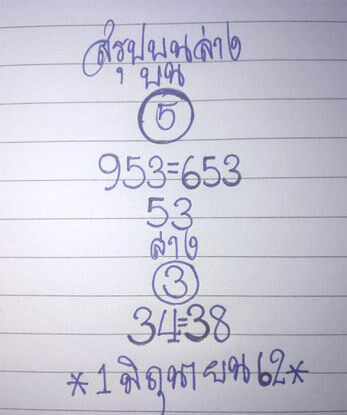 สรุปบนล่าง
บน
5
953=653
53
ล่าง
3
34=38
*1 มิถุนายน 62*